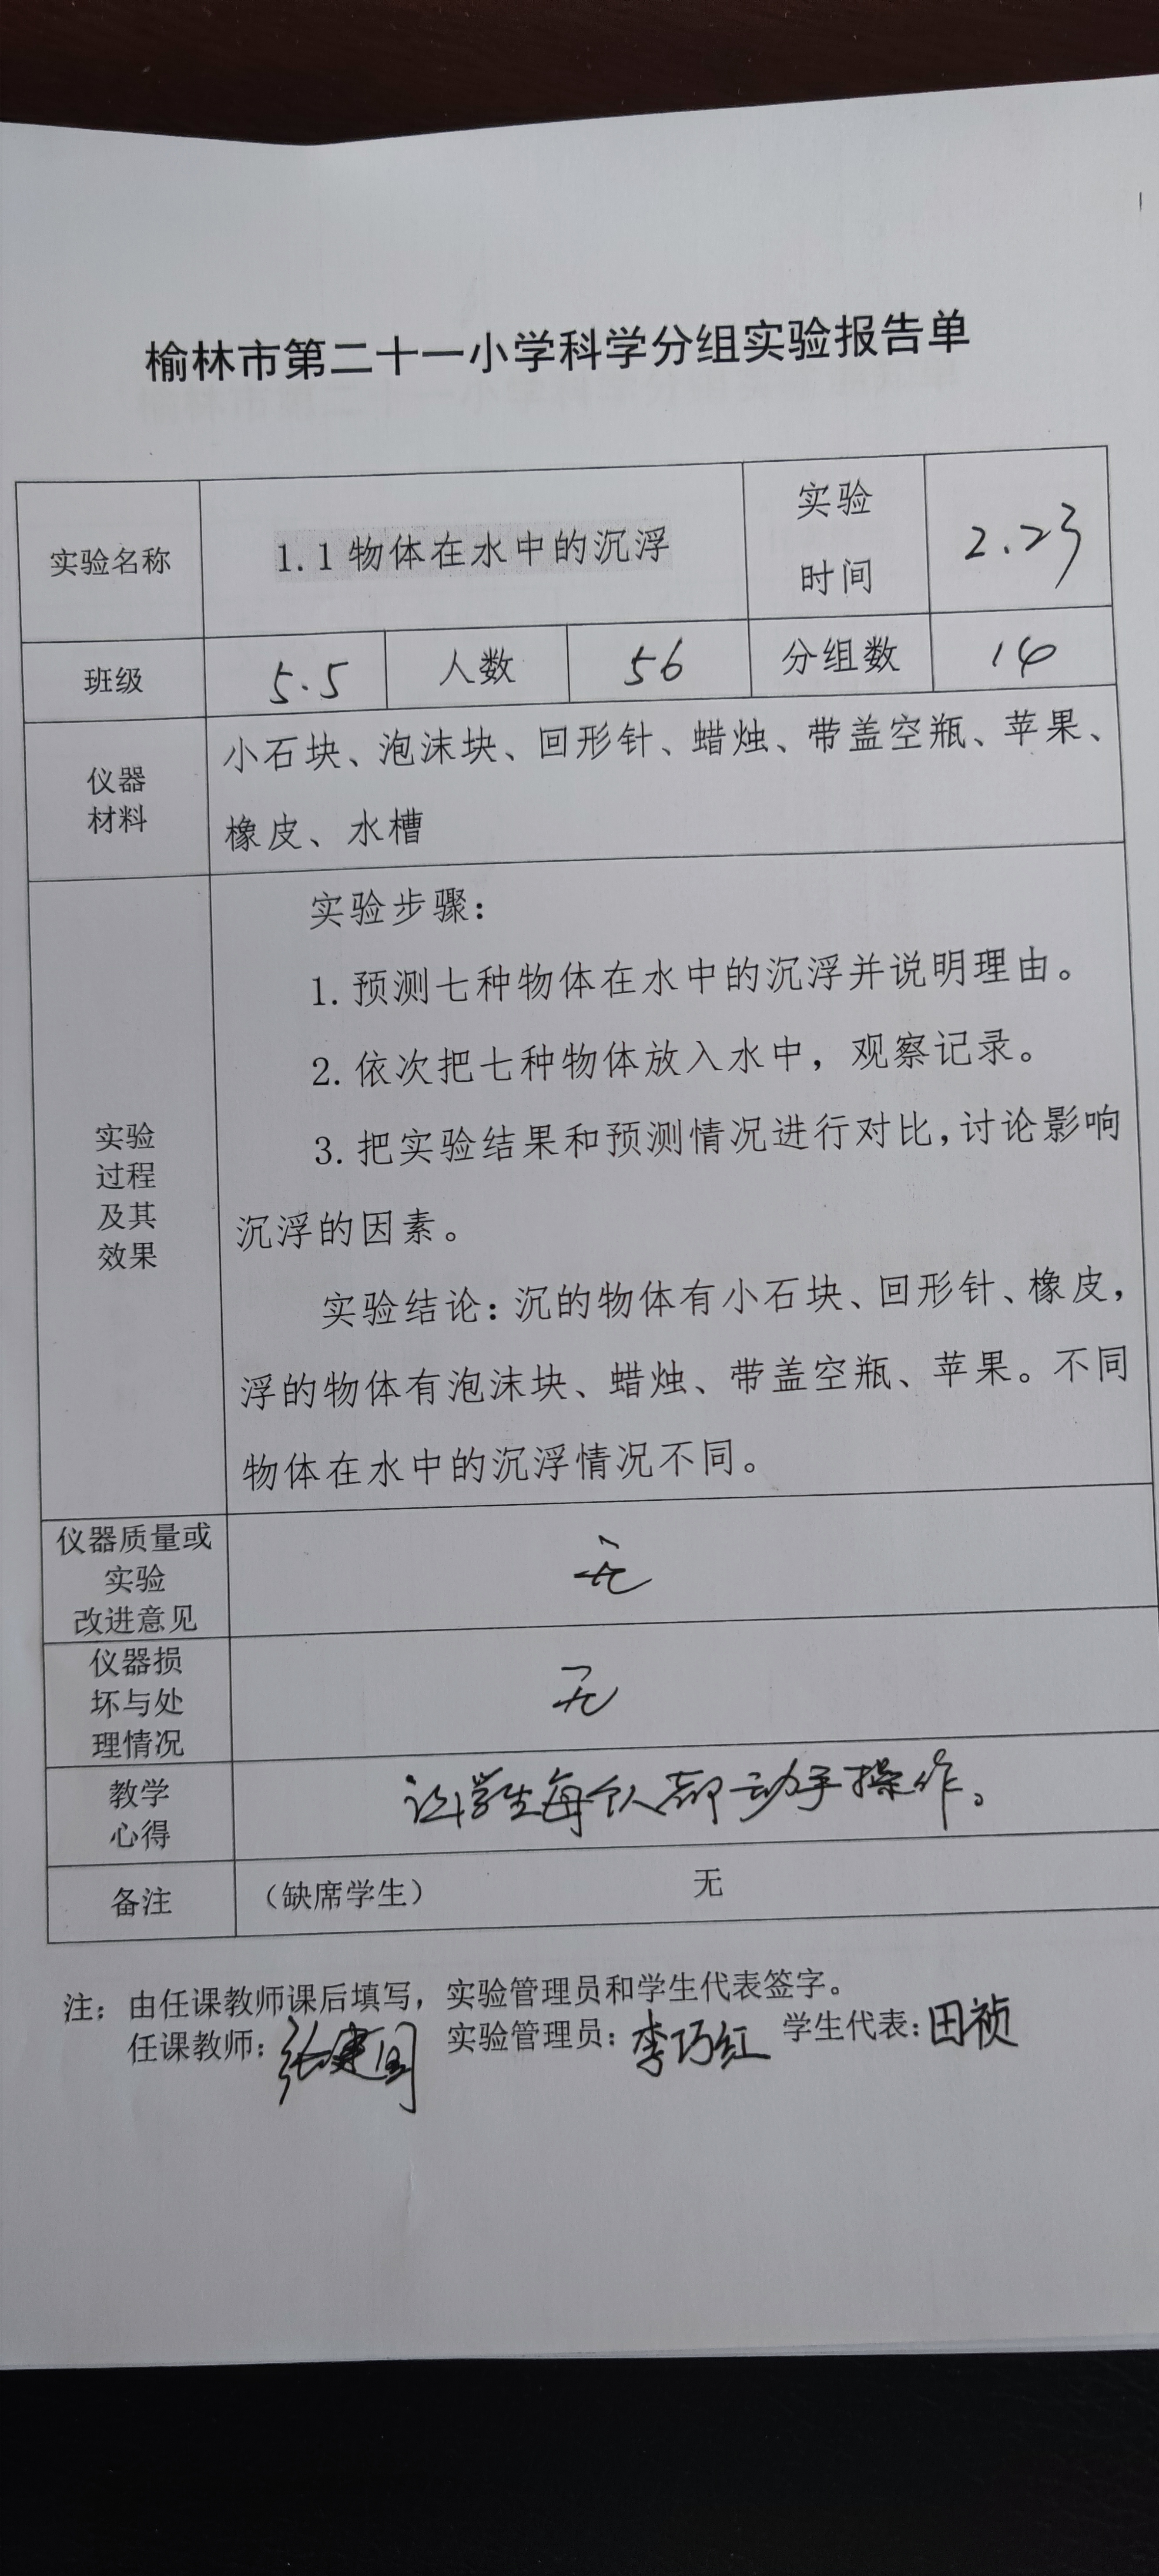 榆林市第二十一小学科学分组实验报告单
实验名称
1.1物体在水中的沉浮
实验
时间
2.23
班级
5.5
人数
56
分组数
14
仪器
材料
小石块、泡沫块、回形针、蜡烛、带盖空瓶、苹果、
橡皮、水槽
实验
过程
及其
效果
实验步骤：
1.预测七种物体在水中的沉浮并说明理由。
2.依次把七种物体放入水中，观察记录。
3.把实验结果和预测情况进行对比，讨论影响
沉浮的因素。
实验结论：沉的物体有小石块、回形针、橡皮，
浮的物体有泡沫块、蜡烛、带盖空瓶、苹果。不同
物体在水中的沉浮情况不同。
仪器质量或
实验
改进意见
无
仪器损
坏与处
理情况
无
教学
心得
让学生每个人都动手操作。
备注
（缺席学生） 无
注：由任课教师课后填写，实验管理员和学生代表签字。
任课教师：张建国 实验管理员：李巧红 学生代表：田祯